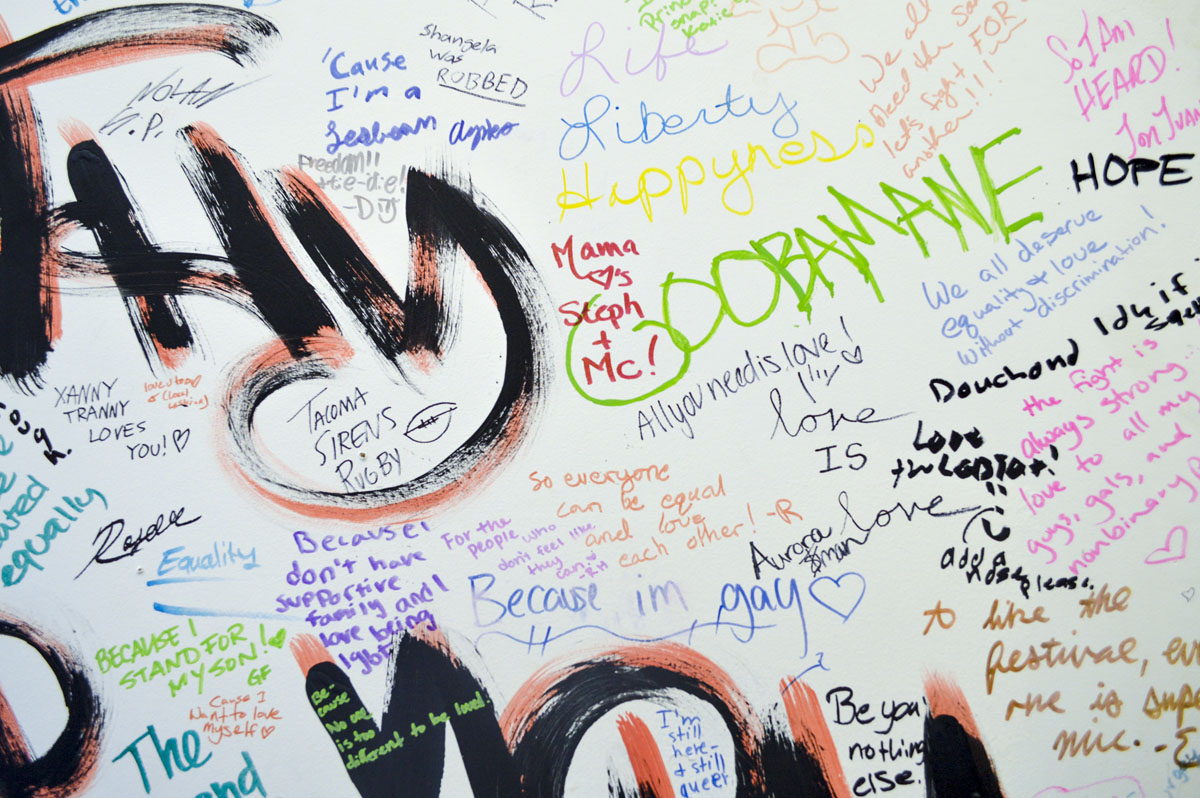 NOLAN
G.P.
Shangela
was
ROBBED
'Cause
I'm a
Lesbean
Freedom!!
tie-die!
Life
Liberty
Happyness
We all
bleed the sa
let's fight FOR
another!!!!
So I Am
HEARD!
Jon Juan
HOPE
OOBAMAWE
Mama
♡'s
Steph
+
Mc!
We all deserve
equality + love
without discrimination!
Idk if
Douchond
All you need is love!
love
IS
love
Love
the LGBTQ+!
add a
nose please.
the fight is
always strong...
love to all my
guys, gals, and
nonbinary
XANNY
TRANNY
LOVES
YOU! ♡
TACOMA
SIRENS
RUGBY
equally
Equality
Because I
don't have
supportive
family and I
love being
lgbt
For the
people who
don't feel like
they can. -RH
So everyone
can be equal
and love
each other! -R
Aurora
Because im gay ♡
BECAUSE I
STAND FOR
MY SON! ♡
GF
Cause I
Want to love
myself ♡
The
Be-
cause
No one
is too
different to be loved!
I'm
still
here -
+ still
queer.
Be you
nothing
else.
to like the
festival, ev
one is sup